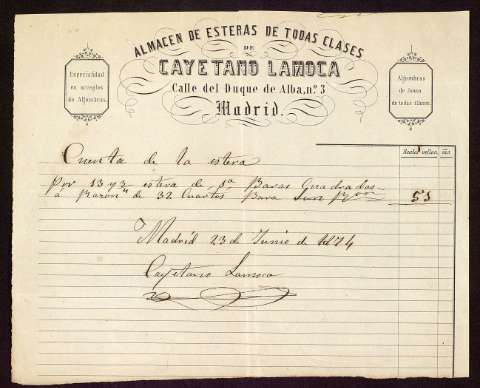 ALMACEN DE ESTERAS DE TODAS CLASES
DE
CAYETANO LAMOCA
Calle del Duque de Alba, nº 3
Madrid.
Especialidad
en arreglos
de Alfombras.
Alfombras
de
de todas clases.
Reales vellon. cs.
Cuenta de la estera
Por 13 y 3 estera de 1ª Baras Cuadradas
a Razon de 32 Cuartos Bara Son Ron 53
Madrid 23 de Junio de 1874
Cayetano Lamoca